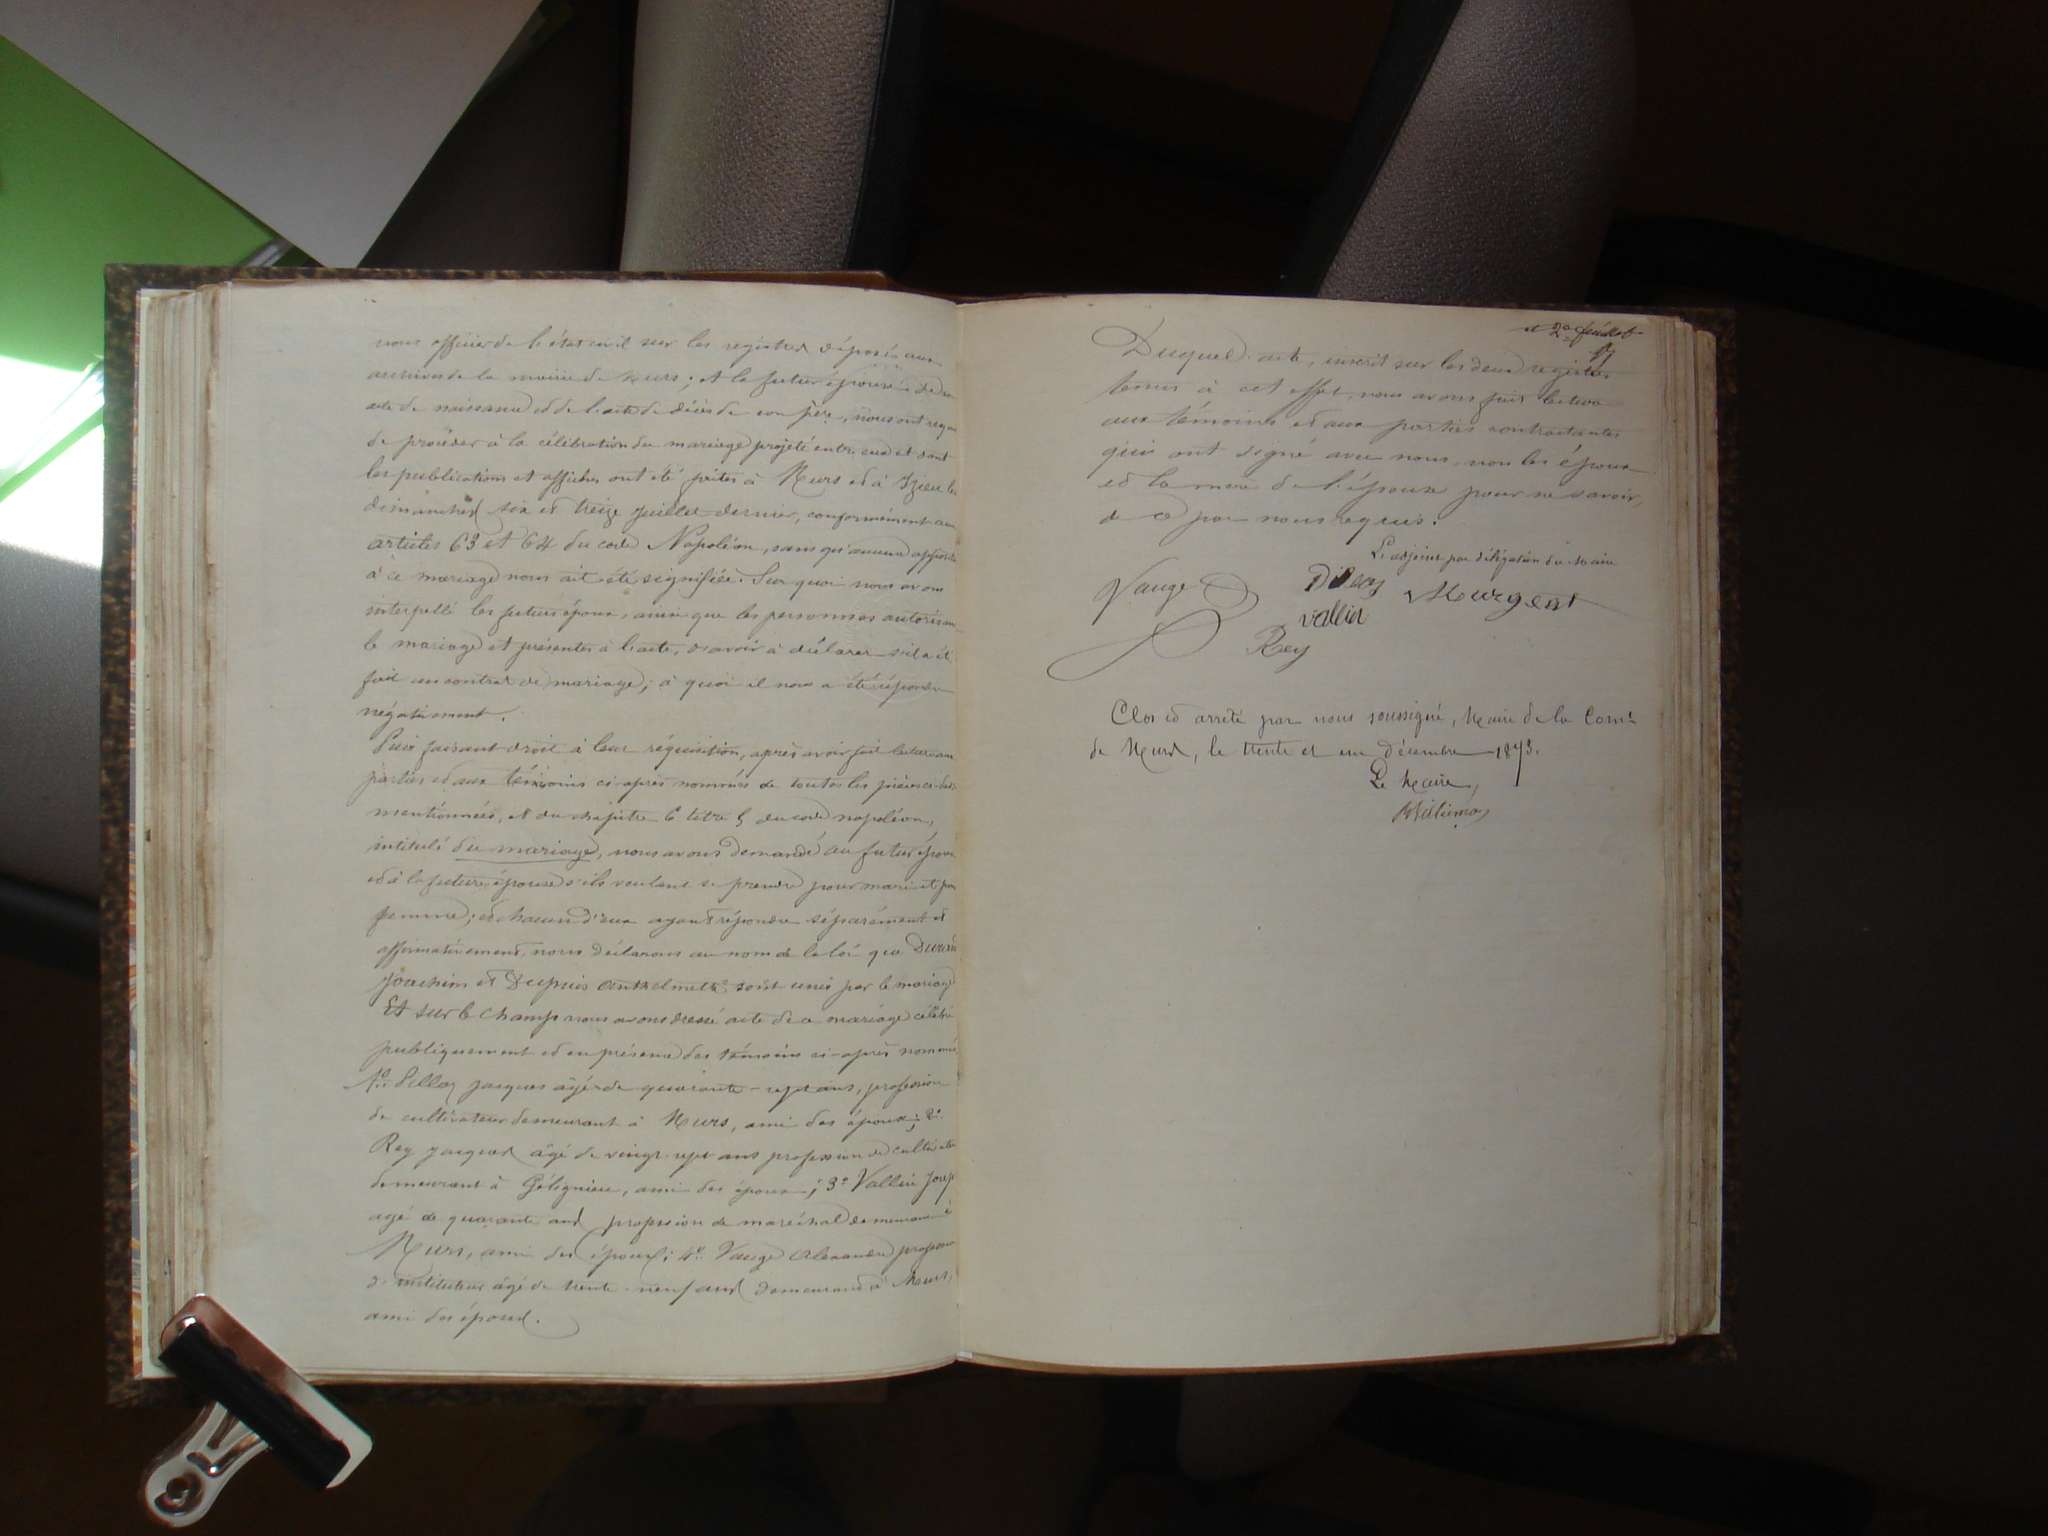 nous officier de l'état civil sur les registres déposés aux
archives de la mairie de Murs ; et la future épouse de son
acte de naissance et de l'acte de décès de son père, nous ont requis
de procéder à la célébration du mariage projeté entre eux et dont
les publications et affiches ont été faites à Murs et à Izieu les
dimanches six et treize juillet dernier, conformément aux
articles 63 et 64 du code Napoléon, sans qu'aucune opposition
à ce mariage nous ait été signifiée. Sur quoi nous avons
interpellé les futurs époux, ainsi que les personnes autorisant
le mariage et présentes à l'acte, d'avoir à déclarer s'il a été
fait un contrat de mariage ; à quoi il nous a été répondu
négativement.
Puis faisant droit à leur réquisition, après avoir fait lecture aux
parties et aux témoins ci-après nommés de toutes les pièces ci-dessus
mentionnées, et du chapitre 6 titre 5 du code napoléon,
intitulé du mariage, nous avons demandé au futur époux
et à la future épouse s'ils veulent se prendre pour mari et pour
femme ; et chacun d'eux ayant répondu séparément et
affirmativement, nous déclarons au nom de la loi que
Joachim et Dupuis Anthelmette sont unis par le mariage
Et sur le champ nous avons dressé acte de ce mariage célébré
publiquement et en présence des témoins ci-après nommés
1º Jacques âgé de quarante-sept ans, profession
de cultivateur demeurant à Murs, ami des époux ; 2º
Rey Jacques âgé de vingt-sept ans profession de cultivateur
demeurant à Gélignieux, ami des époux ; 3º Vallin Josep
agé de quarante ans profession de maréchal demeurant à
Murs, ami des époux ; 4º Vauge Alexandre profession
d'instituteur âgé de trente-neuf ans demeurant à Murs,
ami des époux.
et 2e feuillet
Duquel acte, inscrit sur les deux registres
tenus à cet effet, nous avons fait lecture
aux témoins et aux parties contractantes
qui ont signé avec nous, non les époux
et la mère de l'épouse pour ne savoir,
de ce par nous requis.
L'adjoint par délégation du Maire
Vauge
Murgeat
Vallin
Rey
Clos et arrêté par nous soussigné, Maire de la Comne
de Murs, le trente et un décembre 1873.
Le Maire,